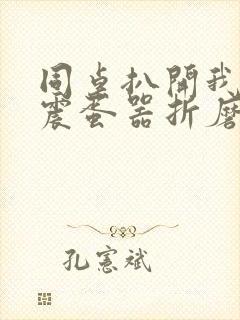 同桌扒開我
震蛋器折磨
孔憲斌